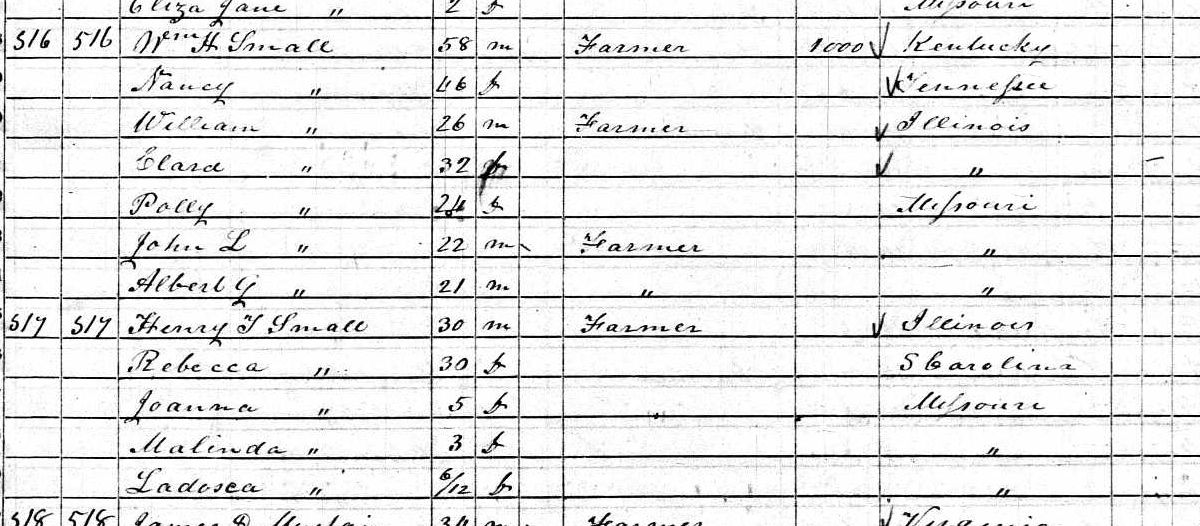 Eliza Jane " 2 f Missouri
516 516 Wm H Small 58 m Farmer 1000 Kentucky
Nancy " 46 f Tennessee
William " 26 m Farmer Illinois
Clara " 32 f "
Polly " 24 f Missouri
John L " 22 m Farmer "
Albert G " 21 m " "
517 517 Henry T Small 30 m Farmer Illinois
Rebecca " 30 f S Carolina
Joanna " 5 f Missouri
Malinda " 3 f "
Ladosca " 6/12 f "
518 518 James 34 m Farmer Virginia